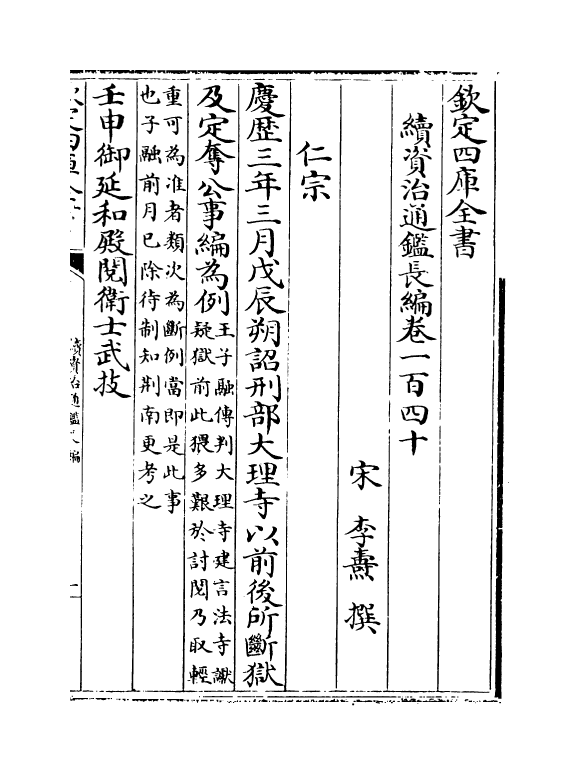 欽定四庫全書
續資治通鑑長編卷一百四十
宋 李燾 撰
仁宗
慶歴三年三月戊辰朔詔刑部大理寺以前後所斷獄
及定奪公事編為例
王子融傳判大理寺建言法寺讞
疑獄前此猥多艱於討閱乃取輕
重可為准者類次為斷例當即是此事
也子融前月已除待制知荆南更考之
壬申御延和殿閱衛士武技
續資治通鑑長編
一